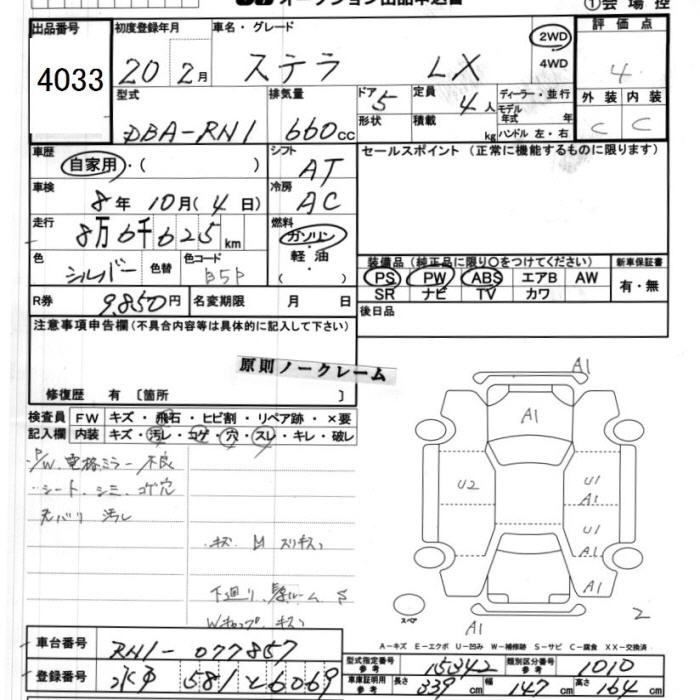 オークション出品申込書 ①会場控
出品番号 4033
初度登録年月 20 2月
車名・グレード ステラ LX
2WD 4WD
評価点 4
外装 C 内装 C
型式 DBA-RN1
排気量 660cc
ドア 5 形状
定員 4人 積載 kg
ディーラー・並行
モデル年式 年
ハンドル 左・右
車歴 自家用・( )
シフト AT
セールスポイント (正常に機能するものに限ります)
車検 8年 10月(4日)
冷房 AC
走行 8万6千625km
燃料 ガソリン・軽油・( )
色 シルバー 色替 色コード B5P
装備品 (純正品に限り○をつけてください) 新車保証書
PS PW ABS エアB AW 有・無
SR ナビ TV カワ
R券 9,850円 名変期限 月 日
後日品
注意事項申告欄 (不具合内容等は具体的に記入して下さい)
原則ノークレーム
修復歴 有 〔箇所 〕
検査員記入欄
FW キズ・飛石・ヒビ割・リペア跡・×要
内装 キズ・汚レ・コゲ・穴・スレ・キレ・破レ
・P/W 電格ミラー不良
・シート、シミ、コゲ穴
汚レ
・キズ
下廻り
A1
A1
U2
U1
A1
U1
A1
A1
A1
スペア
2
A-キズ E-エクボ U-凹み W-補修跡 S-サビ C-腐食 XX-交換済
車台番号 RN1-077857
型式指定番号 参考 15342 類別区分番号 参考 1010
登録番号 581 と6069
車庫証明用 参考 長さ 339cm 幅 147cm 高さ 164cm